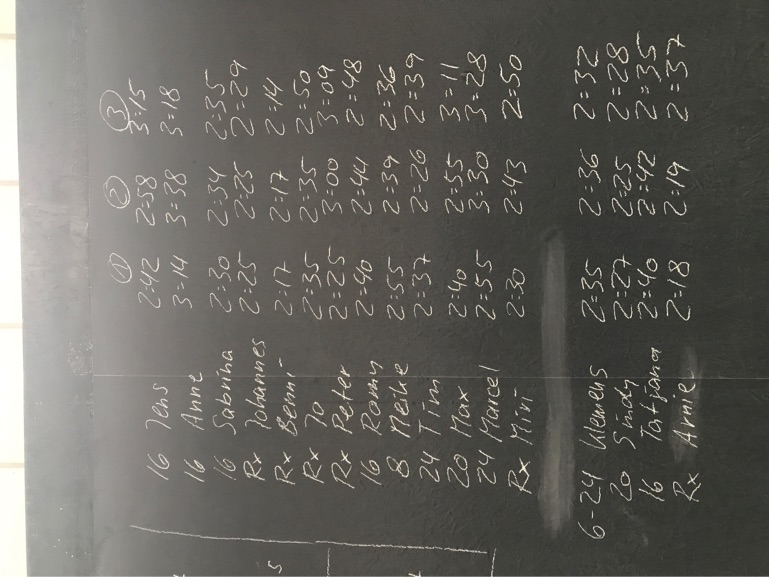 ① ② ③
16 Jens 2:42 2:58 3:15
16 Anne 3:14 3:38 3:18
16 Sabrina 2:30 2:34 2:35
Rx Johannes 2:25 2:25 2:29
Rx Benni 2:17 2:17 2:14
Rx Jo 2:35 2:35 2:50
Rx Peter 2:25 3:00 3:09
16 Romy 2:40 2:44 2:48
8 Meike 2:55 2:39 2:36
24 Tim 2:37 2:26 2:39
20 Max 2:40 2:55 3:11
24 Marcel 2:55 3:30 3:28
Rx Miri 2:30 2:43 2:50
6-24 Klemens 2:35 2:36 2:32
20 Sindy 2:27 2:25 2:28
16 Tatjana 2:40 2:42 2:35
Rx Arnie 2:18 2:19 2:37